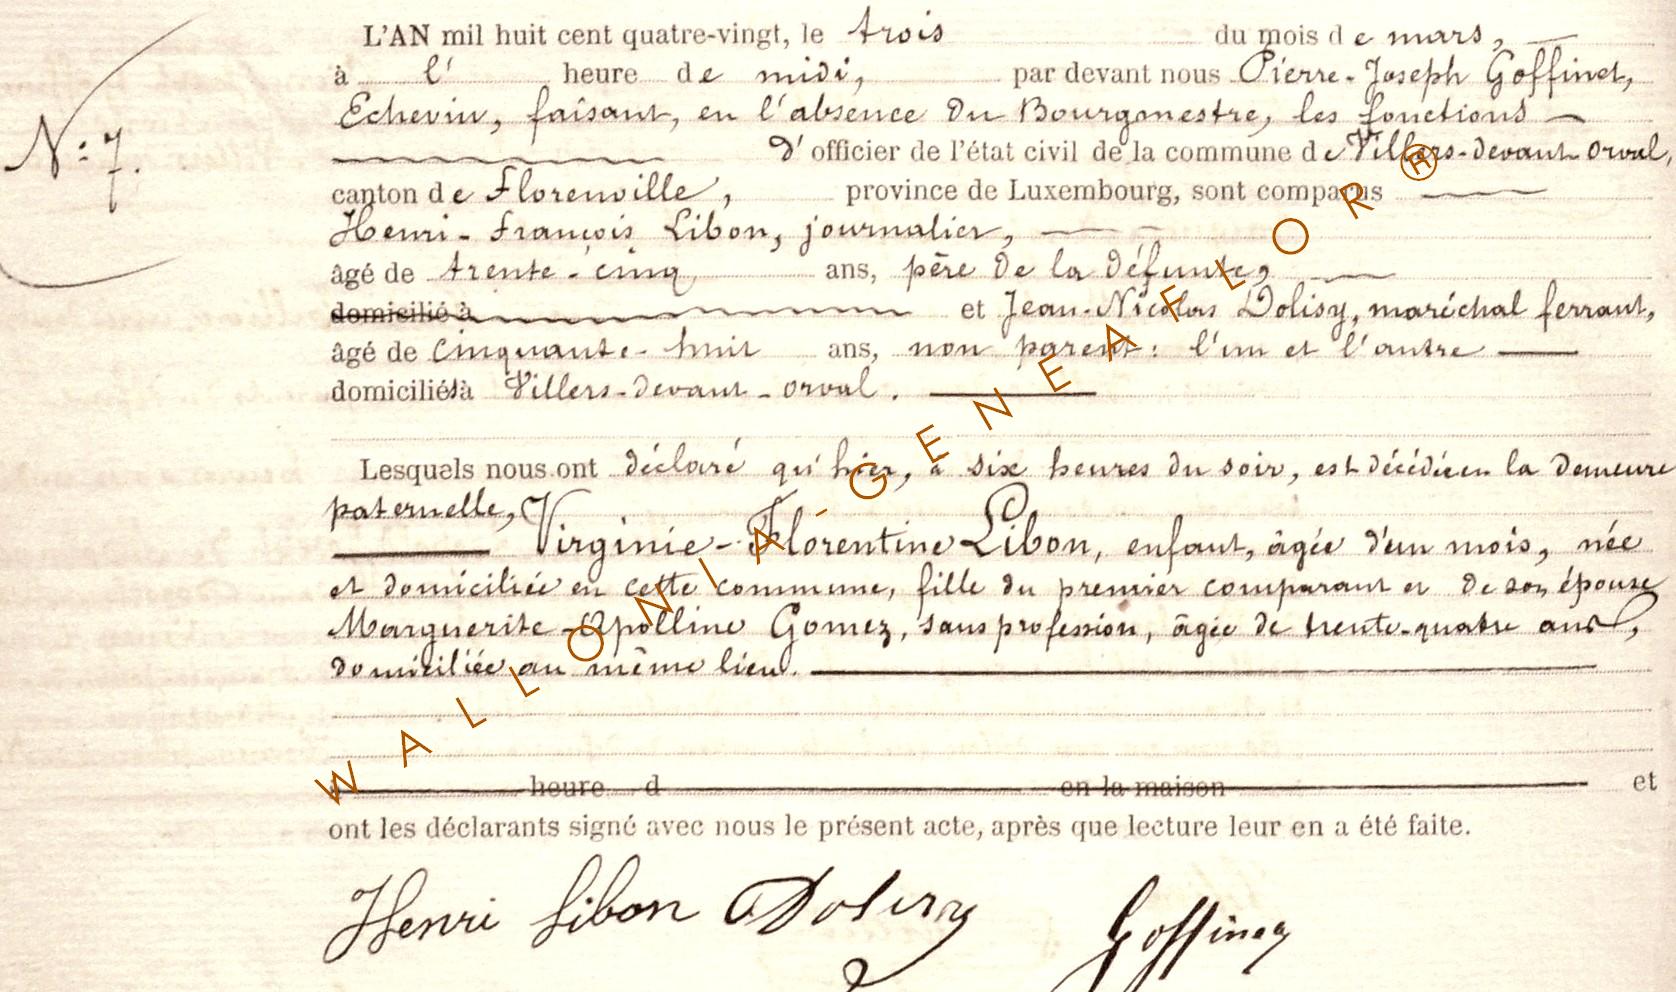 L'AN mil huit cent quatre-vingt, le trois du mois de mars,
à l' heure de midi, par devant nous Pierre-Joseph Goffinet,
Echevin, faisant, en l'absence du Bourgmestre, les fonctions
N° 7.
d'officier de l'état civil de la commune de Villers-devant-Orval,
canton de Florenville, province de Luxembourg, sont comparus
Henri-François Libon, journalier,
âgé de trente-cinq ans, père de la défunte,
domicilié à et Jean-Nicolas Dolisy, maréchal ferrant,
âgé de cinquante-huit ans, non parent: l'un et l'autre
domiciliés à Villers-devant-orval.
Lesquels nous ont déclaré qu'hier, à six heures du soir, est décédée en la demeure
paternelle,
Virginie-Florentine Libon, enfant, âgée d'un mois, née
et domiciliée en cette commune, fille du premier comparant et de son épouse
Marguerite-Apolline Gomez, sans profession, âgée de trente-quatre ans,
domiciliée au même lieu.
heure d en la maison et
ont les déclarants signé avec nous le présent acte, après que lecture leur en a été faite.
Henri Libon Dolisy Goffinet
WALLONIA-GENEAFLOR®